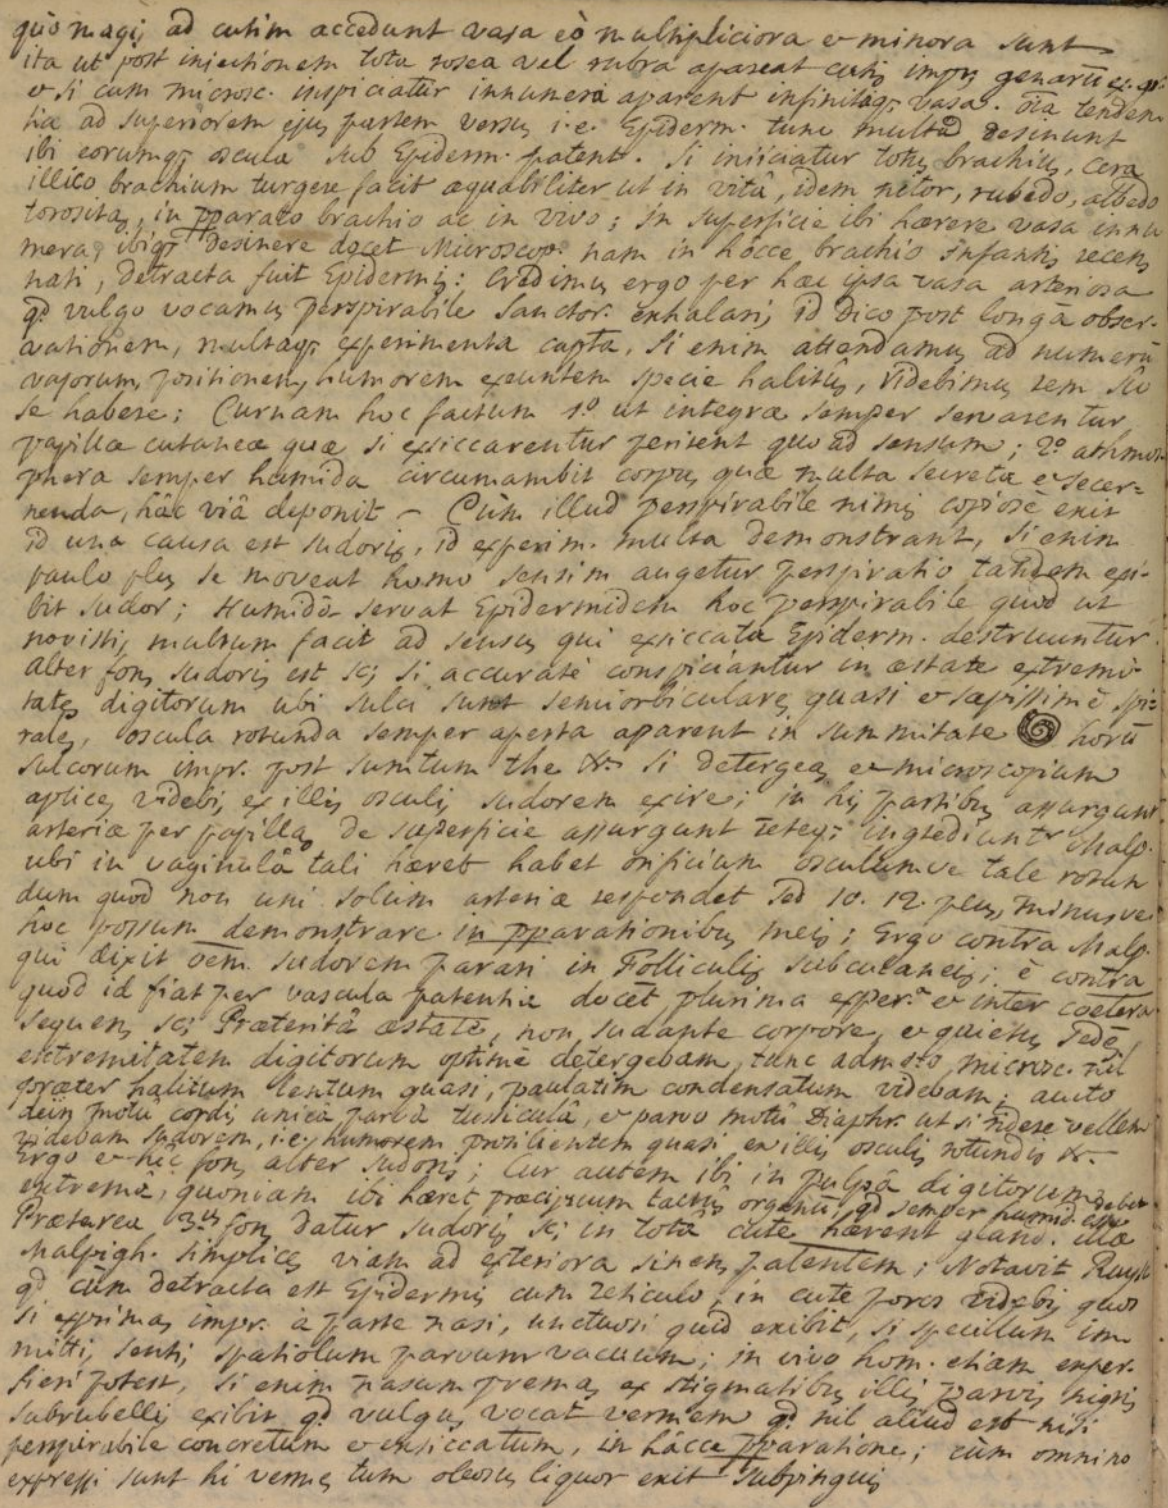 quò magis ad cutim accedunt vasa eò multipliciora & minora sunt
ita ut post injectionem tota rosea vel rubra apareat cutis impr. genarū
& si cum microsc. inspiciatur innumera aparent infinitaq; vasa. oīa tenden
tia ad superiorem ejus partem versus i.e. Epiderm. tunc multa desinunt
ibi eorumq; oscula sub Epiderm. patent. Si iniiciatur totus brachius, cera
illico brachium turgere facit æquabiliter ut in vitâ, idem nitor, rubedo, albedo
torositas, in pparato brachio ac in vivo; in superficie ibi hærere vasa innu
mera, ibiq; desinere docet Microscop. nam in hôcce brachio infantis recens
nati, detracta fuit Epidermis: Credimus ergo per hæc ipsa vasa arteriosa
qd vulgo vocamus perspirabile Sanctor. exhalari, id dico post longā obser-
vationem, multaq; experimenta capta, si enim attendamus ad numerū
vasorum, positionem, humorem exeuntem specie halitûs, videbimus rem sic
se habere; Curnam hoc factum 1º ut integræ semper servarentur
papillæ cutaneæ quæ si exiccarentur perirent quo ad sensum; 2º athmos
phera semper humida circumambit corpus quæ multa secreta & secer=
nenda, hâc viâ deponit – Cùm illud perspirabile nimis copiosè exit
id una causa est sudoris, id experim. multa demonstrant, si enim
paulo plus se moveat homo sensim augetur perspiratio tandem exi-
bit sudor; Humidā servat Epidermidem hoc perspirabile quod ut
novistis, multum facit ad sensus qui exsiccatâ Epiderm. destruuntur
alter fons sudoris est sc; si accuratè conspiciantur in æstate extremi-
tates digitorum ubi sulci sunt semiorbiculares quasi & sæpissimè spi=
rales, oscula rotunda semper aperta aparent in summitate horū
sulcorum impr. post sumtum the &c. si detergeas & microscopium
aplices videbis ex illis osculis sudorem exire; in his partibus assurgunt
arteriæ per papillas de superficie assurgunt reteq; ingrediuntr Malp.
ubi in vaginulâ tali hæret habet orificium osculumve tale rotun
dum quod non uni solùm arteriæ respondet sed 10. 12. plus, minusve
hoc possum demonstrare in pparationibus meis; Ergo contra Malp.
qui dixit oēm sudorem parari in Folliculis subcutaneis; è contra
quod id fiat per vascula patentia docēt plurima experª & inter cœtera
sequens sc; Præteritâ æstate, non sudante corpore, & quietus sedē,
extremitatem digitorum optimè detergebam, tunc admoto microsc. nil
præter halitum lentum quasi, paulatim condensatum videbam; aucto
dein motu cordis unicâ parvâ tussiculâ, & parvo motu Diaphr. ut si ridere vellem
videbam sudorem, i.e. humorem prosilientem quasi ex illis osculis rotundis &c.
Ergo & hîc fons alter sudoris; Cur autem ibi in pulpâ digitorum
extremâ, quoniam ibi hæret præcipuum tactûs organū; qd semper humid. esse debet
Præterea 3us fons datur sudoris sc; in totâ cute hærent gland. illæ
Malpigh. simplices viam ad exteriora sinens patentem; Notavit Ruysh
qd cùm detracta est Epidermis cum reticulo, in cute poros videbis quos
si exprimas impr. à parte nasi, unctuosi quid exibit, si specillum im
mittis, sentis spatiolum parvum vacuum; in vivo hom. etiam exper.
fieri potest, si enim nasum premas ex stigmatibus illis parvis nigris
subrubellis exibit qd vulgus vocat vermem qd nil aliud est nisi
perspirabile concretum & exsiccatum, in hâcce pparatione; cùm omnino
expressi sunt hi vermes tum oleosus liquor exit subpinguis